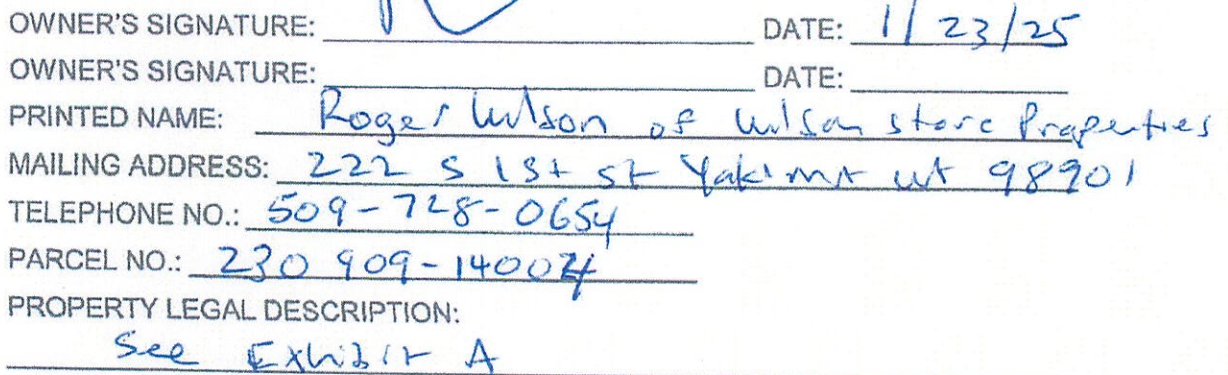 OWNER'S SIGNATURE: DATE: 1/23/25
OWNER'S SIGNATURE: DATE:
PRINTED NAME: Roger Wilson of Wilson store Properties
MAILING ADDRESS: 222 S 1st st Yakima WA 98901
TELEPHONE NO.: 509-728-0654
PARCEL NO.: 230909-14004
PROPERTY LEGAL DESCRIPTION:
See Exhibit A